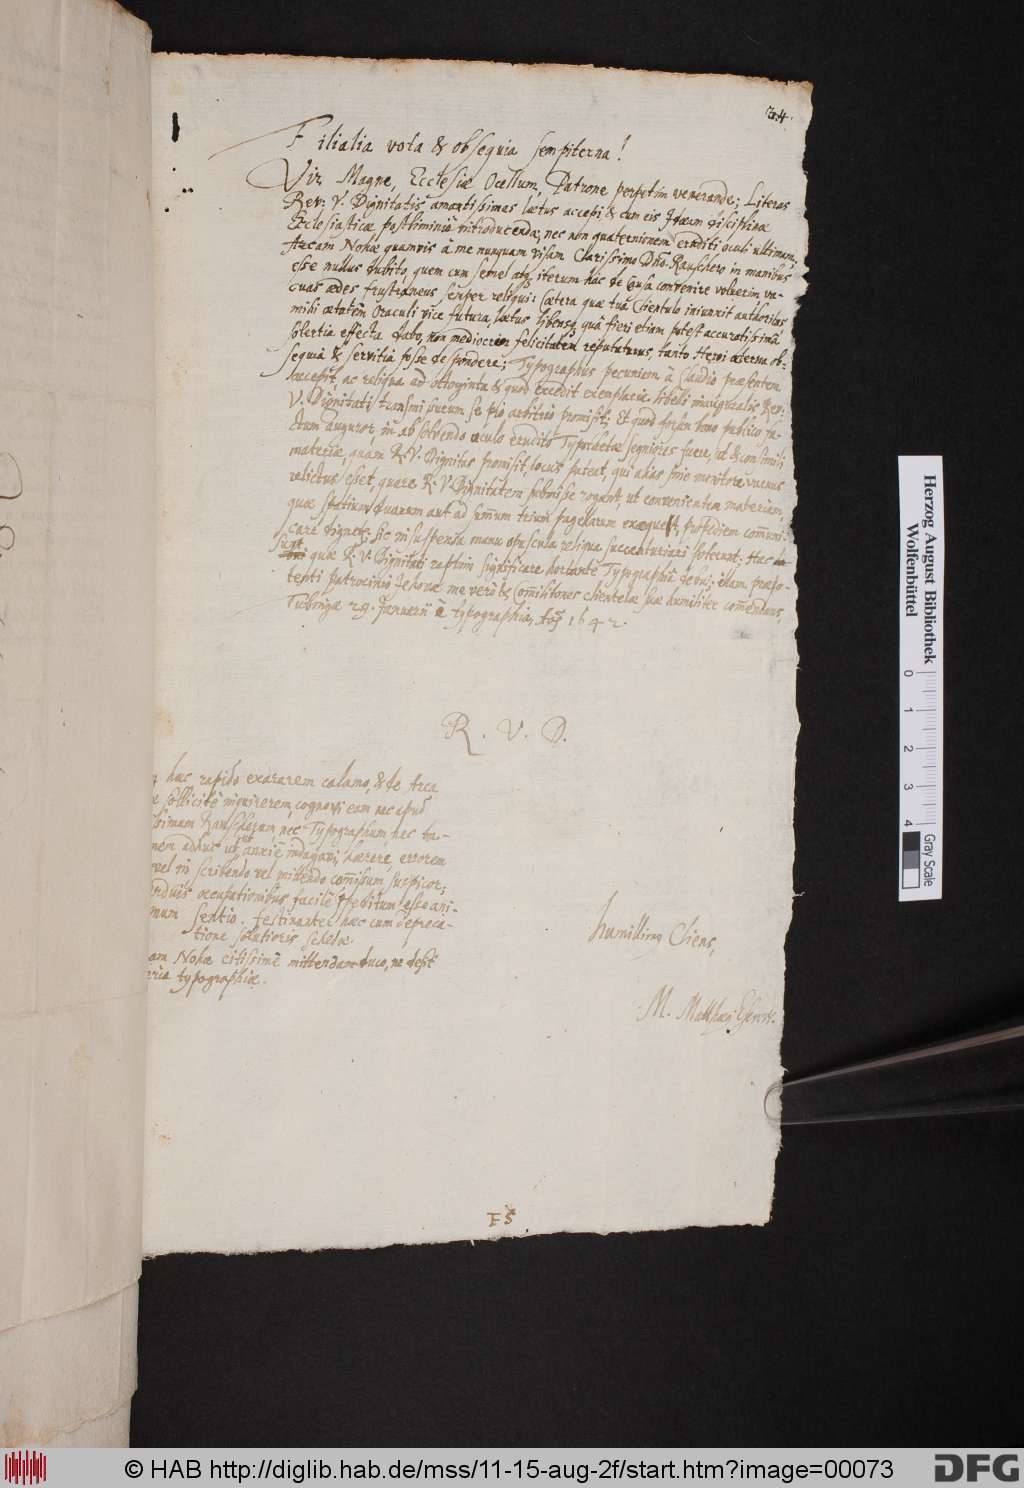 34.
Filialia vota & obsequia sempiterna!
Vir Magne, Ecclesiæ Ocellum, Patrone perpetim venerande; Literas
Rev: V. Dignitatis amantissimas lætus accepi, & cum eis Ideam disciplinæ
Ecclesiasticæ postliminiò introducendæ, nec non quaternionem eruditi oculi ultimam,
Arcam Nohæ quamvis à me nunquam visam Clarissimo Dño. Rauschero in manibus
esse nullus dubito, quem cum semel atq; iterum hac de causa convenire voluerim va-
cuas ædes frustraneus semper reliqui: Cætera quæ tuâ Clientulo iniunxit authoritas
mihi ætatem Oraculi vice futura, lætus libensq; quâ fieri etiam potest accuratissimâ
solertia effecta dabo, non mediocrem felicitatem reputaturus, tanto Heroi æterna ob-
sequia & servitia posse despondere; Typographus pecuniam à Claudio præsentem
accepit, ac reliqua ad octoginta & quod excedit exemplaria libelli inauguralis Rev:
V. Dignitati transmissurum se pio arbitrio promisit; Et quod forsan bono publico fa-
ctum auguror, in absolvendo oculo erudito Typothetæ segniores fuere, ut & consimili;
materiæ, quam R. V. Dignitas promisit, locus pateat, qui alias sine monitore vacuus
relictus esset, quare R. V. Dignitatem submisse rogant, ut convenientem materiam,
quæ spatium duarum aut ad sum̄um trium pagellarum exæquet, propediem com̄uni-
care dignet; sic in suspensa manu opuscula reliqua succenturiari poterunt. Hæc
sunt quæ R. V. Dignitati raptim significare hortante Typographiâ debui; illam præpo-
tenti patrocinio Jehovæ me verò & Com̄ilitones clientelæ suæ humiliter com̄endans,
Tubingæ 29. Januarii è typographia, Aõ 1642.
R. V. D.
hæc rapido exararem calamo, & de Arca
sollicitè inquirerem, cognovi eam nec apud
Rauscherum, nec Typographum, nec ta-
adhuc ut anxiè indagavi, hærere, errorem
vel in scribendo vel mittendo com̄issum suspicor;
arduis occupationibus facilè debitum esse ani-
mum sentio. festinanter hæc cum depreca-
tione solutioris schedæ.
am Nohæ citissimè mittendam duco, ne desit
typographiæ.
humillimq Cliens,
M. Matthæus Esen
F S
Herzog August Bibliothek
Wolfenbüttel
0 1 2 3 4
Gray Scale
© HAB http://diglib.hab.de/mss/11-15-aug-2f/start.htm?image=00073
DFG